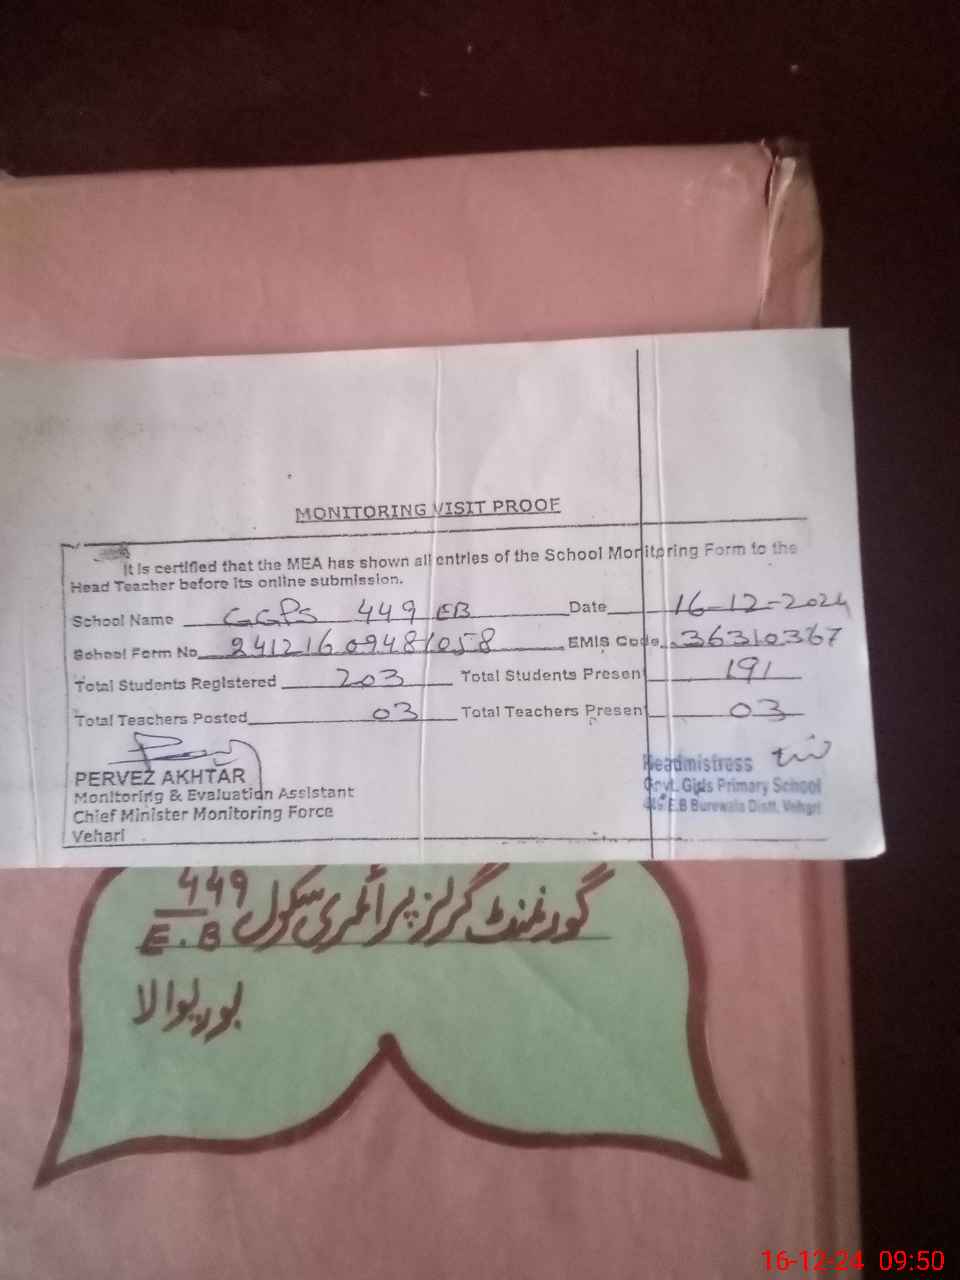 MONITORING VISIT PROOF
It is certified that the MEA has shown all entries of the School Monitoring Form to the
Head Teacher before its online submission.
School Name GGPS 449 EB Date 16-12-2024
School Form No 24121609481058 EMIS Code 36310367
Total Students Registered 203 Total Students Present 191
Total Teachers Posted 03 Total Teachers Present 03
PERVEZ AKHTAR
Monitoring & Evaluation Assistant
Chief Minister Monitoring Force
Vehari
Headmistress
Govt. Girls Primary School
449 E.B Burewala Distt. Vehari
گورنمنٹ گرلز پرائمری سکول 449
E.B
بوریوالا
16-12-24 09:50